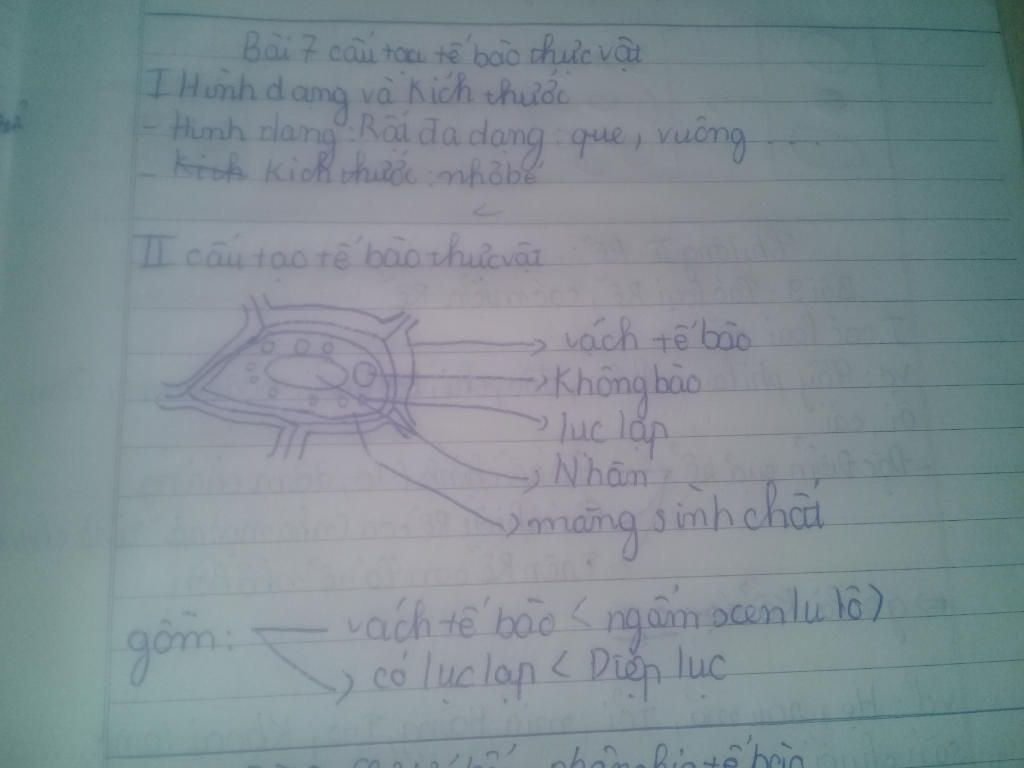 Bài 7 cấu tạo tế bào thực vật
I Hình dạng và Kích thước
- Hình dạng: Rất đa dạng: que, vuông ....
- Kích thước: nhỏ bé
II cấu tạo tế bào thực vật
vách tế bào
Không bào
lục lạp
Nhân
màng sinh chất
gồm: vách tế bào < ngấm xenlulô)
có lục lạp < Diệp lục